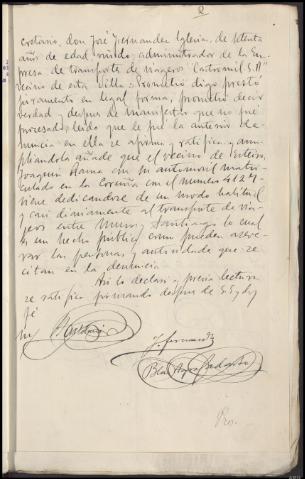 2
cretario, don José Fernandez Iglesia, de setenta
años de edad viudo, administrador de la Em
presa de transporte de viageros "Castromil S.A"
vecino de esta villa. Prometido digo prestó
juramento en legal forma, prometió decir
verdad y despues de manifestar que no fué
procesado, leido que le fué la anterior de-
nuncia en ella se afirma y ratifica y am-
pliandola añade que el vecino de
Joaquin Rama con su automovil matri-
culado en la Coruña con el numero 4124
viene dedicandose de un modo habitual
y casi diariamente al transporte de via-
jeros entre Muros y Santiago lo cual
es un hecho público como pueden aseve-
rar las personas y autoridades que se
citan en la denuncia.
Asi lo declaró y previa lectura
se ratifica firmando despues de S.S. doy
fé
J. Fernandez
Pro.